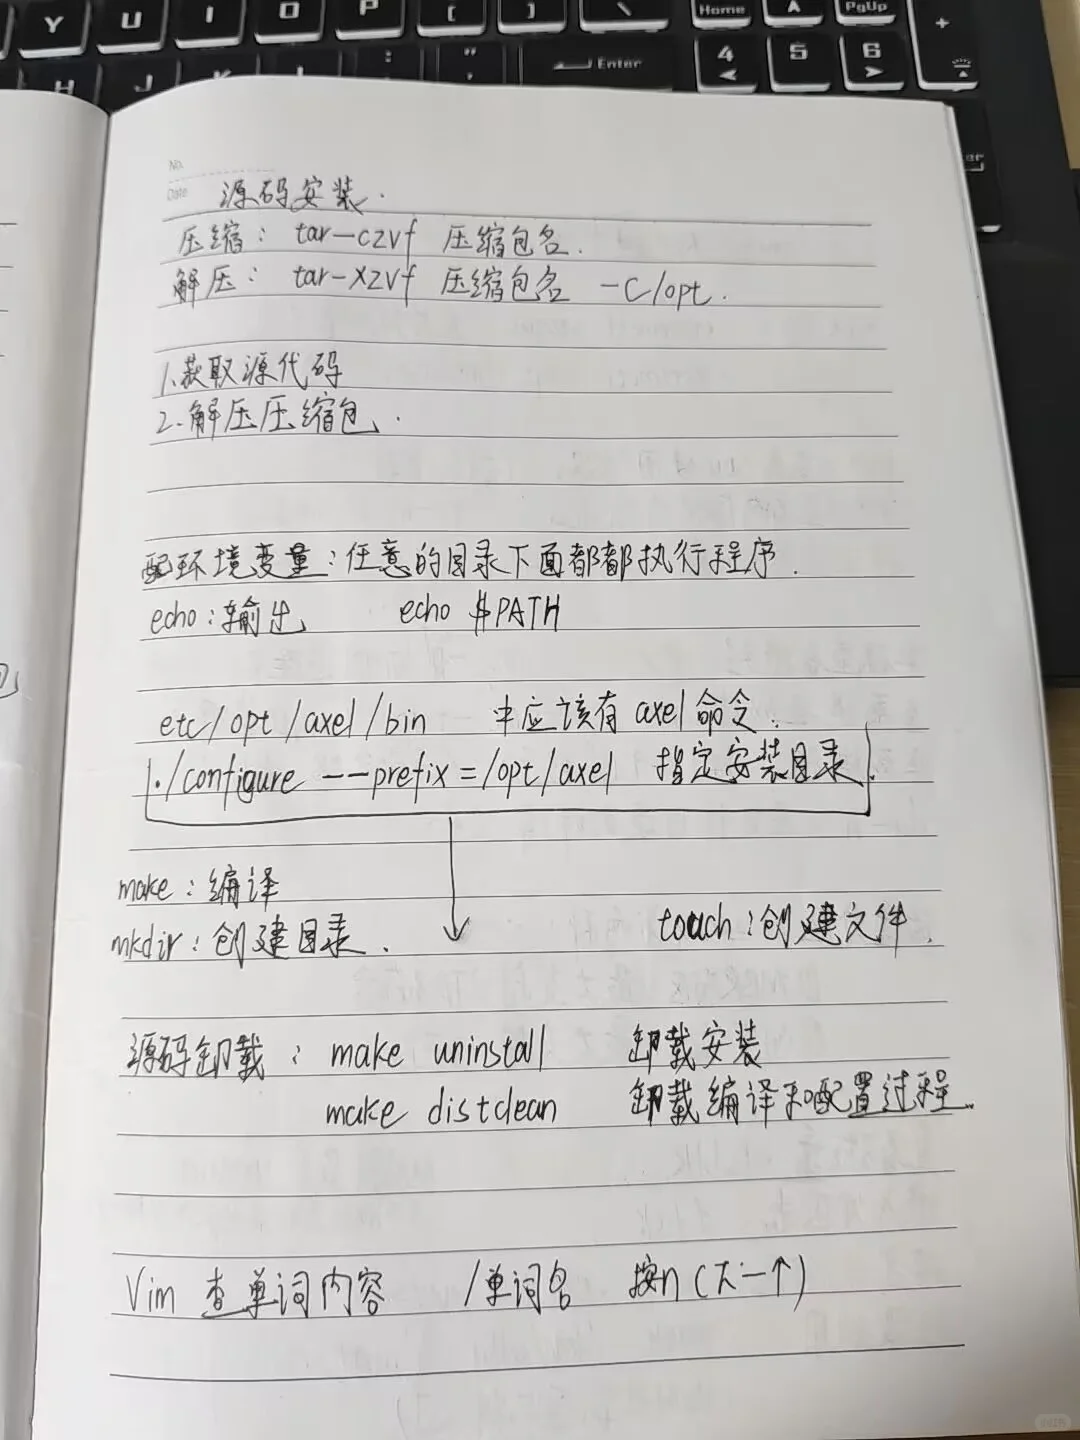 Y U I O P [ ] \ Home A PgUp +
H J K L : ; " ' Enter 4 5 6
No.
Date 源码安装.
压缩: tar-czvf 压缩包名.
解压: tar-xzvf 压缩包名 -C/opt.
1.获取源代码
2.解压压缩包.
配环境变量:任意的目录下面都都执行程序.
echo:输出 echo $PATH
etc/opt/axel/bin 中应该有axel命令.
./configure --prefix=/opt/axel 指定安装目录.
make:编译
mkdir:创建目录. touch:创建文件.
源码卸载: make uninstall 卸载安装
make distclean 卸载编译和配置过程.
Vim 查单词内容 /单词名 按n(下一个)